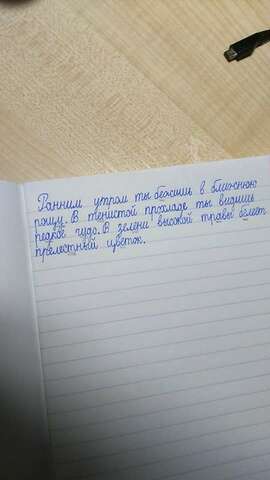 Ранним утром ты бежишь в ближнюю
рощу. В тенистой прохладе ты видишь
редкое чудо. В зелени высокой травы белеет
прелестный цветок.